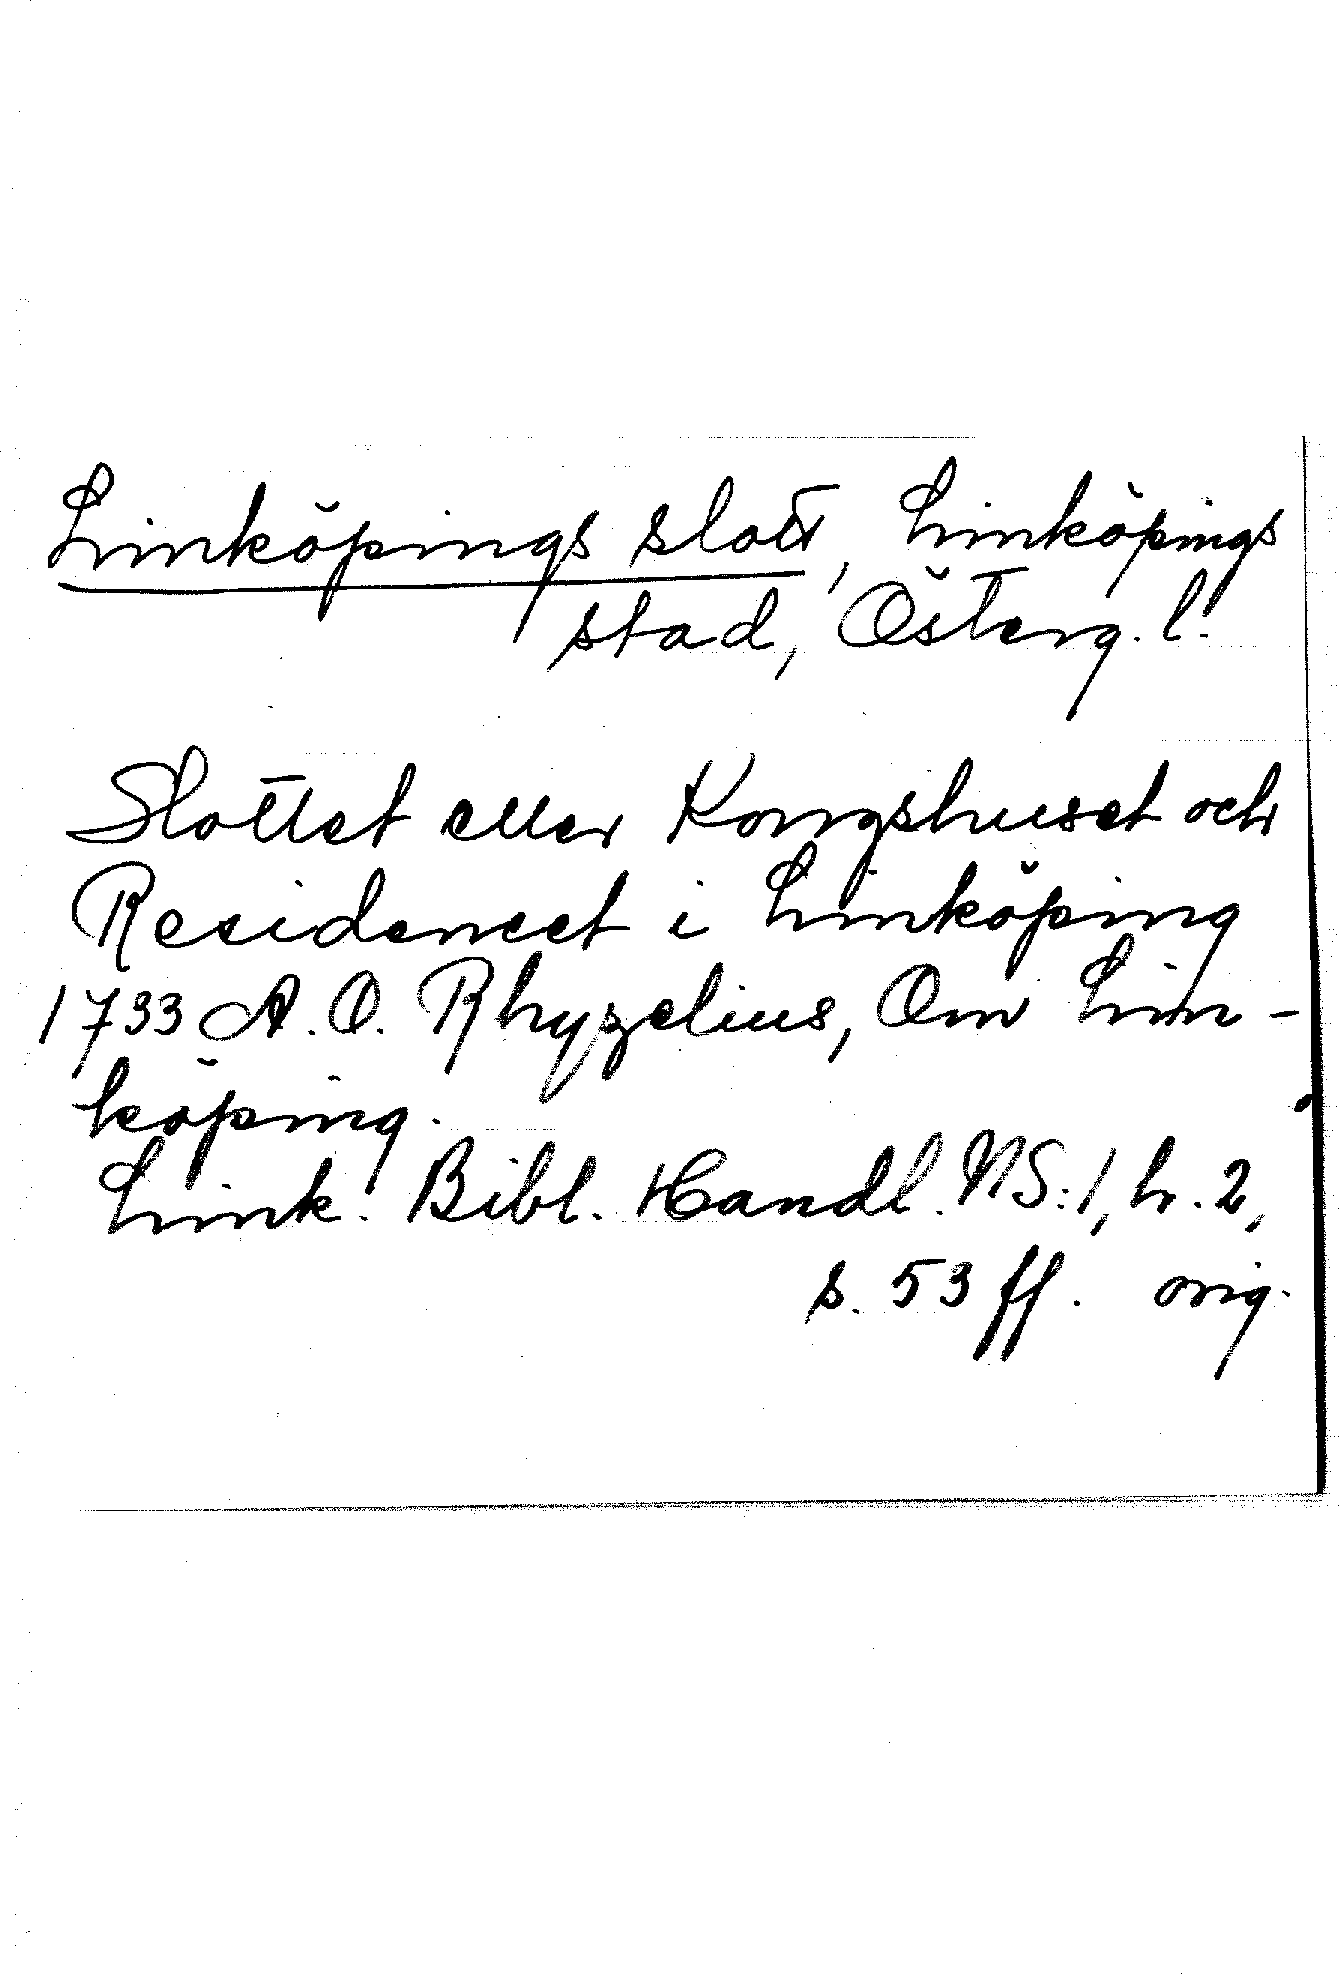 Linköpings slott, Linköpings
stad, Österg. l.
Slottet eller Kongshuset och
Residencet i Linköping
1733 A. O. Rhyzelius, Om Lin-
köping.
Link. Bibl. Handl. NS:1, h. 2,
s. 53 ff. orig.